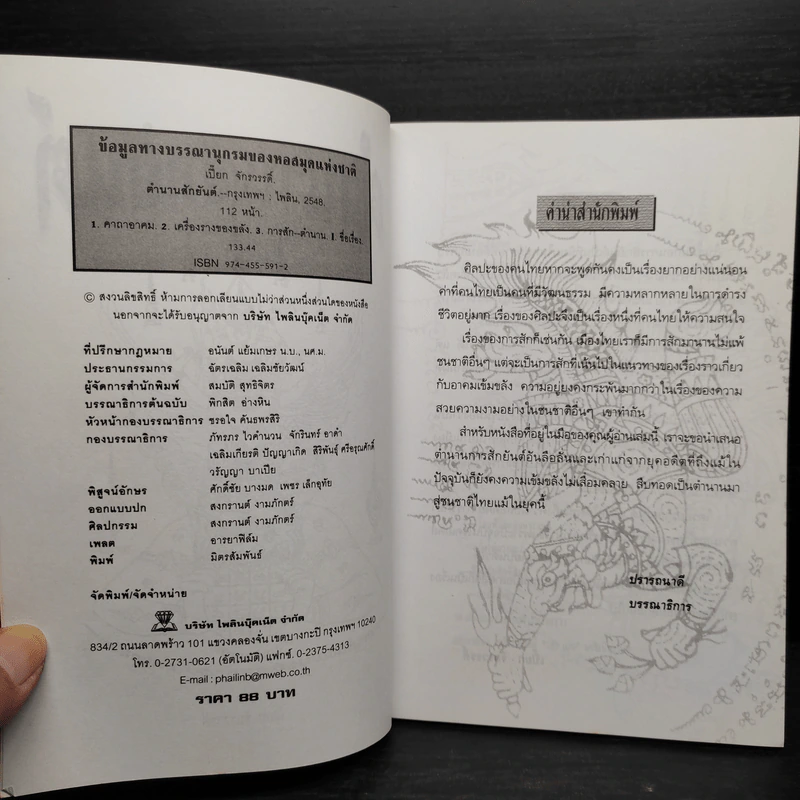 ข้อมูลทางบรรณานุกรมของหอสมุดแห่งชาติ
เปี๊ยก จักรวรรดิ์.
ตำนานสักยันต์.--กรุงเทพฯ : ไพลิน, 2548.
112 หน้า.
1. คาถาอาคม. 2. เครื่องรางของขลัง. 3. การสัก--ตำนาน. I. ชื่อเรื่อง.
133.44
ISBN 974-455-591-2
© สงวนลิขสิทธิ์ ห้ามการลอกเลียนแบบไม่ว่าส่วนหนึ่งส่วนใดของหนังสือ
นอกจากจะได้รับอนุญาตจาก บริษัท ไพลินบุ๊คเน็ต จำกัด
ที่ปรึกษากฎหมาย อนันต์ แย้มเกษร น.บ., นศ.ม.
ประธานกรรมการ ฉัตรเฉลิม เฉลิมชัยวัฒน์
ผู้จัดการสำนักพิมพ์ สมบัติ สุทธิจิตร
บรรณาธิการต้นฉบับ พิกสิต อ่างหิน
หัวหน้ากองบรรณาธิการ ขรอใจ คันธพรสิริ
กองบรรณาธิการ ภัทรภร ไวคำนวน จักรินทร์ อาดำ
เฉลิมเกียรติ ปัญญาเกิด สิริพันธุ์ ศรีอรุณศักดิ์
วรัญญา บาเปีย
พิสูจน์อักษร ศักดิ์ชัย บางมด เพชร เล็กอุทัย
ออกแบบปก สงกรานต์ งามภักตร์
ศิลปกรรม สงกรานต์ งามภักตร์
เพลต อารยาฟิล์ม
พิมพ์ มิตรสัมพันธ์
จัดพิมพ์/จัดจำหน่าย
บริษัท ไพลินบุ๊คเน็ต จำกัด
834/2 ถนนลาดพร้าว 101 แขวงคลองจั่น เขตบางกะปิ กรุงเทพฯ 10240
โทร. 0-2731-0621 (อัตโนมัติ) แฟกซ์. 0-2375-4313
E-mail : phailinb@mweb.co.th
ราคา 88 บาท
คำนำสำนักพิมพ์
ศิลปะของคนไทยหากจะพูดกันคงเป็นเรื่องยากอย่างแน่นอน
ค่าที่คนไทยเป็นคนที่มีวัฒนธรรม มีความหลากหลายในการดำรง
ชีวิตอยู่มาก เรื่องของศิลปะจึงเป็นเรื่องหนึ่งที่คนไทยให้ความสนใจ
เรื่องของการสักก็เช่นกัน เมืองไทยเราก็มีการสักมานานไม่แพ้
ชนชาติอื่นๆ แต่จะเป็นการสักที่เน้นไปในแนวทางของเรื่องราวเกี่ยว
กับอาคมเข้มขลัง ความอยู่ยงคงกระพันมากกว่าในเรื่องของความ
สวยความงามอย่างในชนชาติอื่นๆ เขาทำกัน
สำหรับหนังสือที่อยู่ในมือของคุณผู้อ่านเล่มนี้ เราจะขอนำเสนอ
ตำนานการสักยันต์อันลือลั่นและเก่าแก่จากยุคอดีตที่ถึงแม้ใน
ปัจจุบันก็ยังคงความเข้มขลังไม่เสื่อมคลาย สืบทอดเป็นตำนานมา
สู่ชนชาติไทยแม้ในยุคนี้
ปรารถนาดี
บรรณาธิการ